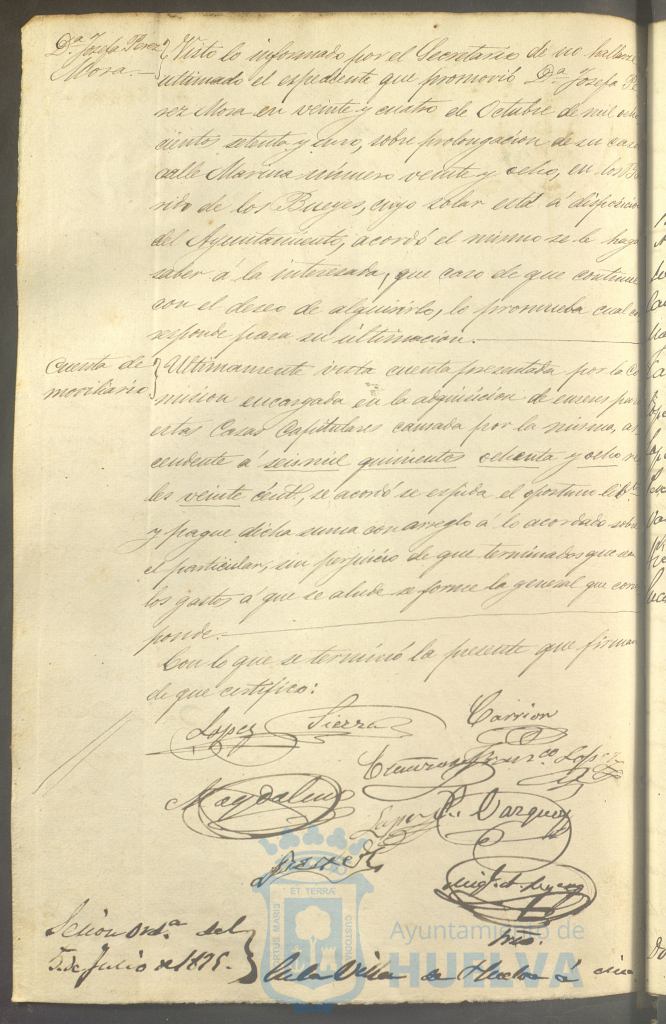 Dª Josefa Perez
Mora.
Visto lo informado por el Secretario de no hallarse
ultimado el espediente que promovió Dª Josefa Pe
rez Mora en veinte y cuatro de Octubre de mil ocho
cientos setenta y uno, sobre prolongacion de su casa
calle Marina número veinte y ocho, en los
de los Bueyes, cuyo solar está á disposicion
del Ayuntamiento, acordó el mismo se le haga
saber á la interesada, que caso de que continue
con el deseo de alquirirlo, lo promueba cual cor
responde para su ultimacion.
Cuenta de
moviliario
Ultimamente vista cuenta presentada por la Co
mision encargada en la adquisicion de para
estas Casas Capitulares causada por la misma, as
cendente á seis mil quinientos ochenta y ocho rea
les veinte cént., se acordó se espida el oportuno lib.
y pague dicha suma con arreglo á lo acordado sobre
el particular, sin perjuicio de que terminados que sean
los gastos á que se alude se forme la general que corres
ponde.
Con lo que se terminó la presente que firman
de que certifico:
Lopez Sierra Carrion
Franco Lopez
Magdaleno
Lopez Vazquez
Srio.
Sesion Ordª del
5 de Julio de 1875.
En la Villa de Huelva á cinco
ET TERRA
PORTUS MARIS
CUSTODIA
Ayuntamiento de
HUELVA